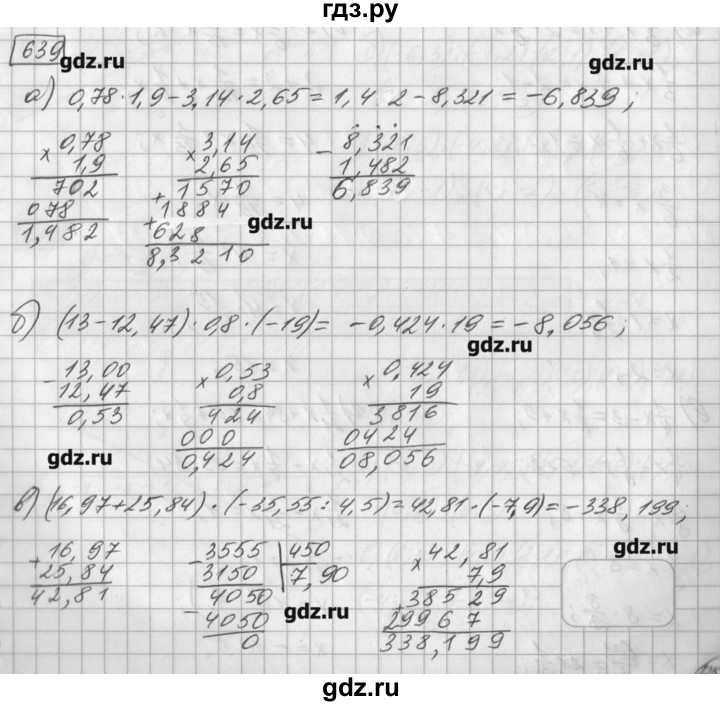 гдз.ру
639
gdz.ru
gdz.ru
а) 0,78·1,9-3,14·2,65=1,4 2-8,321=-6,839;
0,78
× 1,9
702
078
1,482
3,14
× 2,65
+ 1570
+ 1884
628
8,3210
- 8,321
1,482
6,839
gdz.ru
б) (13-12,47)·0,8·(-19)= -0,424·19=-8,056;
gdz.ru
- 13,00
12,47
0,53
× 0,53
0,8
424
000
0,424
× 0,424
19
3816
0424
08,056
gdz.ru
в) (16,97+25,84)·(-35,55:4,5)=42,81·(-7,9)=-338,199;
gdz.ru
+ 16,97
25,84
42,81
- 3555 | 450
3150 | 7,90
4050
- 4050
0
× 42,81
7,9
+ 38529
29967
338,199
gdz.ru
gdz.ru